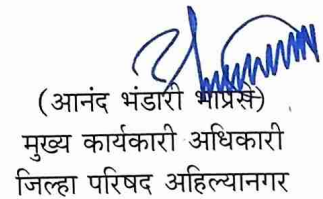 (आनंद भंडारी भाप्रसे)
मुख्य कार्यकारी अधिकारी
जिल्हा परिषद अहिल्यानगर